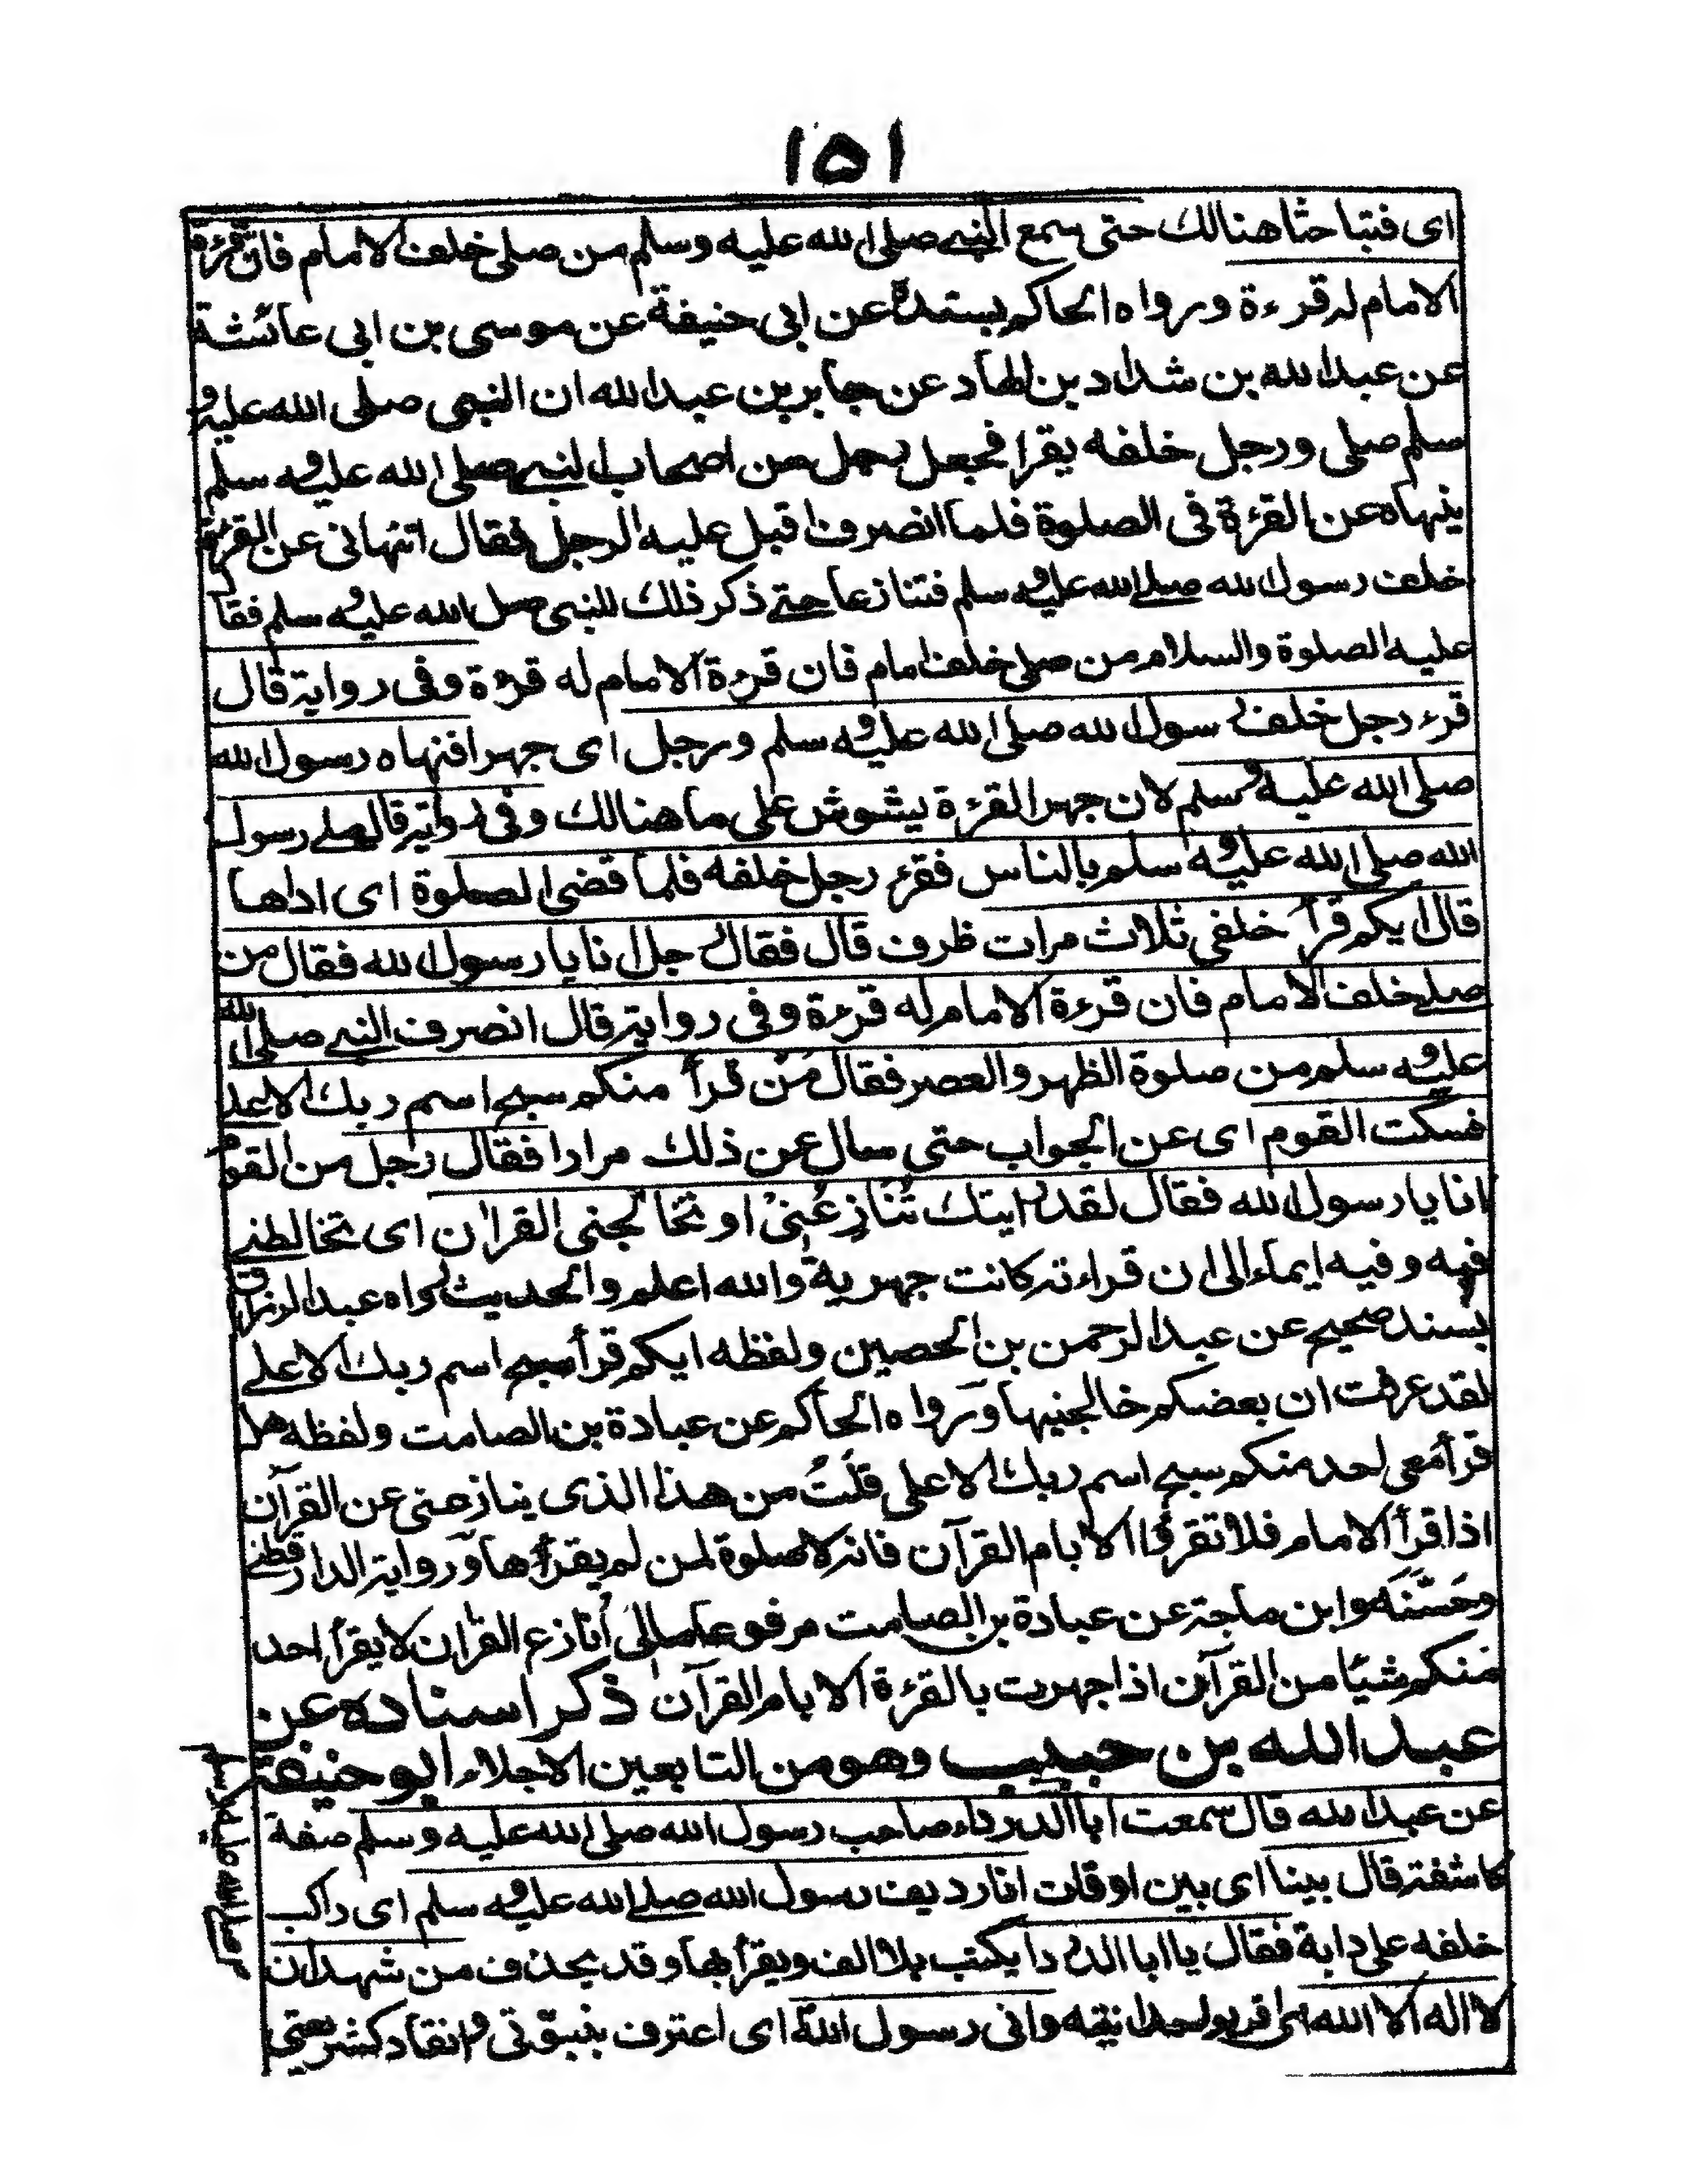 ١٥١
اى فتباحثا هنالك حتى سمع النبى صلى الله عليه وسلم من صلى خلف الامام فان قرءة
الامام له قرءة ورواه الحاكم بسنده عن ابى حنيفة عن موسى بن ابى عائشة
عن عبد الله بن شداد بن الهاد عن جابر بن عبد الله ان النبى صلى الله عليه و
سلم صلى ورجل خلفه يقرا فجعل رجل من اصحاب النبى صلى الله عليه وسلم
ينهاه عن القرءة فى الصلوة فلما انصرف اقبل عليه الرجل فقال اتنهانى عن القرءة
خلف رسول الله صلى الله عليه وسلم فتنازعا حتى ذكر ذلك للنبى صلى الله عليه وسلم فقال
عليه الصلوة والسلام من صلى خلف امام فان قرءة الامام له قرءة وفى رواية قال
قرء رجل خلف رسول الله صلى الله عليه وسلم ورجل اى جهرا فنهاه رسول الله
صلى الله عليه وسلم لان جهر القرءة يشوش على ما هنالك وفى رواية قال صلى رسول
الله صلى الله عليه وسلم بالناس فقرء رجل خلفه فلما قضى الصلوة اى اداها
قال ايكم قرأ خلفى ثلاث مرات ظرف قال فقال رجل انا يا رسول الله فقال من
صلى خلف الامام فان قرءة الامام له قرءة وفى رواية قال انصرف النبى صلى الله
عليه وسلم من صلوة الظهر والعصر فقال مَنْ قرأ منكم سبح اسم ربك الاعلى
فسكت القوم اى عن الجواب حتى سال عن ذلك مرارا فقال رجل من القوم
انا يا رسول الله فقال لقد رايتك تُنَازِعُنِىْ او تخالجنى القراٰن اى تخالطنى
فيه وفيه ايماء الى ان قراءته كانت جهرية والله اعلم والحديث رواه عبد الرزاق
بسند صحيح عن عبد الرحمن بن الحصين ولفظه ايكم قرأ سبح اسم ربك الاعلى
لقد عرفت ان بعضكم خالجنيها ورواه الحاكم عن عبادة بن الصامت ولفظه هل
قرأ معى احد منكم سبح اسم ربك الاعلى قلتُ من هذا الذى ينازعنى عن القرآن
اذا قرأ الامام فلا تقرؤا الا بام القرآن فانه لا صلوة لمن لم يقرأ بها ورواية الدارقطنى
وحَسَّنَه وابن ماجة عن عبادة بن الصامت مرفوعا مالى أنازع القراٰن لا يقرأ احد
منكم شيًا من القرآن اذا جهرت بالقرءة الا بام القرآن ذكر اسناده عن
عبد الله بن حبيب وهو من التابعين الاجلاء ابو حنيفة
عن عبد الله قال سمعت ابا الدرداء صاحب رسول الله صلى الله عليه وسلم صفة
كاشفة قال بينا اى بين اوقات انا رديف رسول الله صلى الله عليه وسلم اى راكب
خلفه على دابة فقال يا ابا الدردا يكتب بلا الف ويقرأ بها وقد يحذف من شهد ان
لا اله الا الله اى اقر بوحدانيته وانى رسول الله اى اعترف بنبوّتى وانقاد لشريعتى